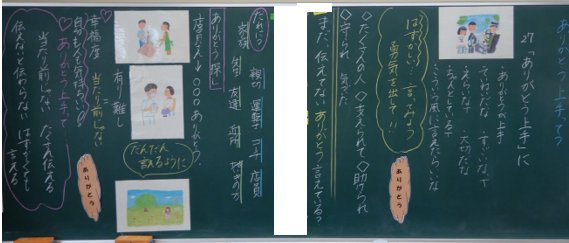 ありがとう上手って?
27「ありがとう上手」に
・ありがとうが上手
・ていねいだな
・すごいな
・えらいな
・大切だな
・ちゃんとしてる
・こういう風に言えたらいいな
はずかしい… 言ってみよう
勇気を出して!!
◇たくさんの人 ◇支えられて ◇助けられ
◇守られ 気づいた
まだ、伝えてないありがとう言えている?
ありがとう
だれに?
家族 先生 友達 近所 地いきの方
親せき 運転手 コーチ 店員
ありがとう探し
〇〇〇ありがとう。
だんだん
言えるように
有り難し
=
当たり前じゃない
幸福度
自分も人も気持ちいい
♡ありがとう上手って
当たり前じゃない だから伝える
伝えないと伝わらない はずかしくても
言える
ありがとう